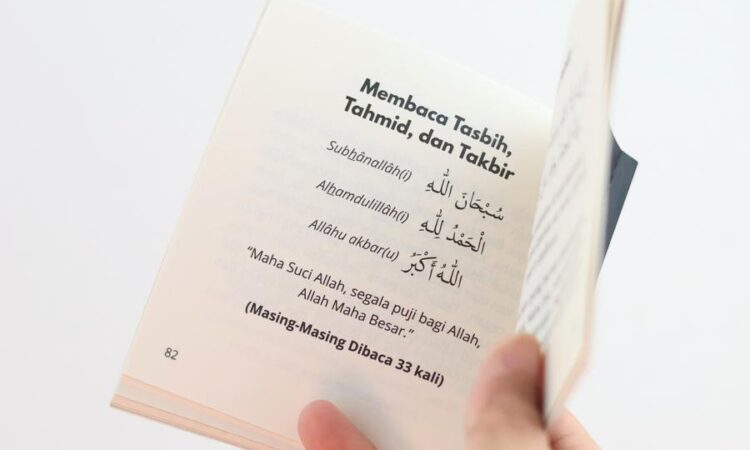 Membaca Tasbih,
Tahmid, dan Takbir
Subẖânallâh(i) سُبْحَانَ اللّٰهِ
Alẖamdulillâh(i) الْحَمْدُ لِلّٰهِ
Allâhu akbar(u) اللّٰهُ أَكْبَرُ
“Maha Suci Allah, segala puji bagi Allah,
Allah Maha Besar.”
(Masing-Masing Dibaca 33 kali)
82